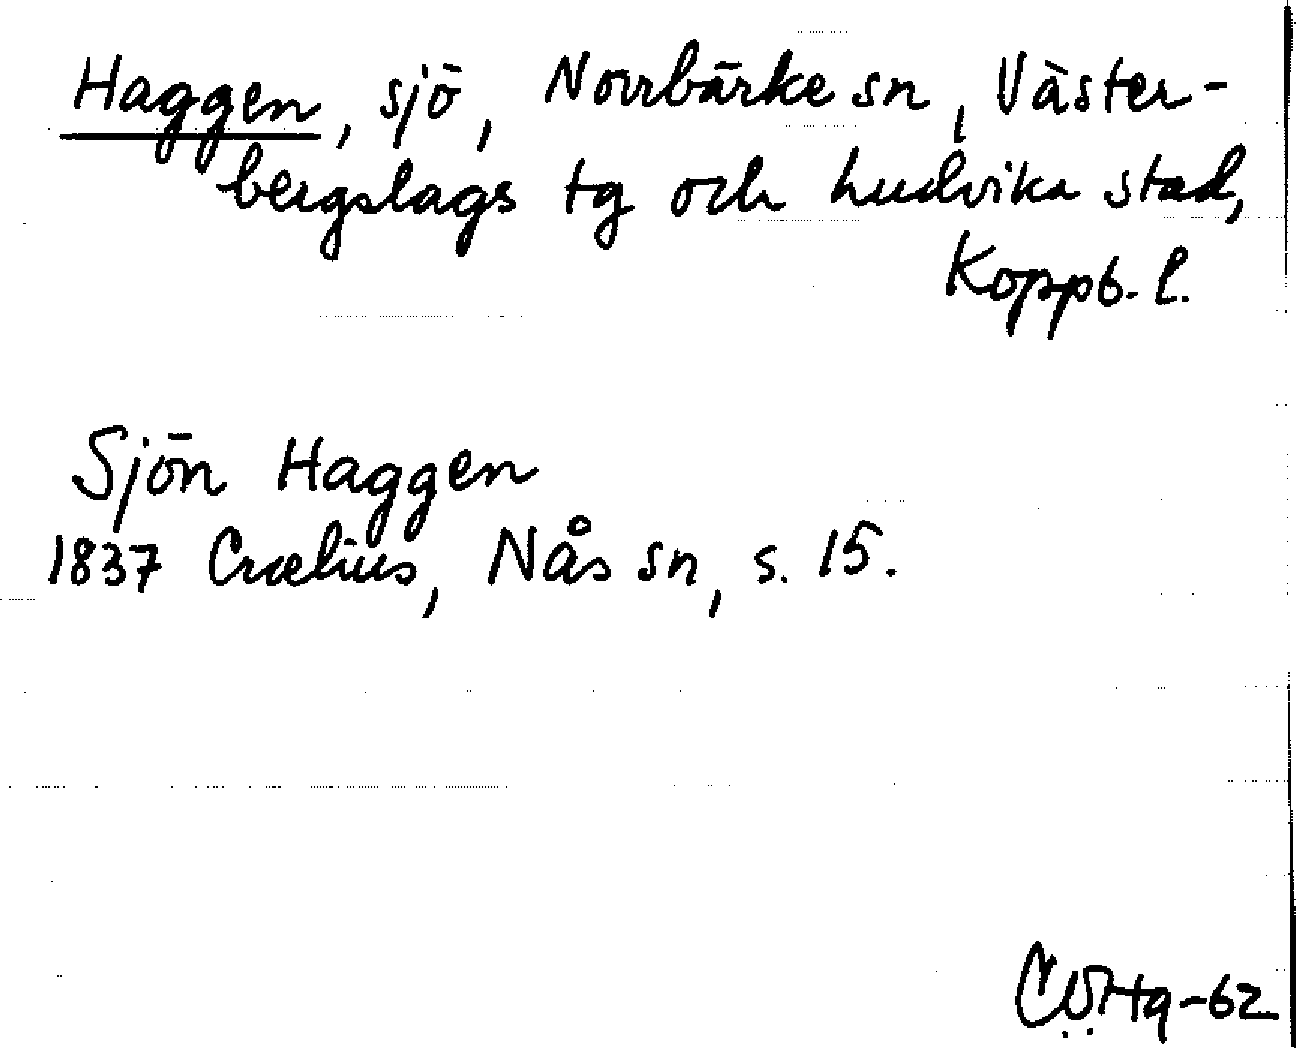 Haggen, sjö, Norrbärke sn, Väster-
bergslags tg och Ludvika stad,
Koppb. l.
Sjön Haggen
1837 Crælius, Nås sn, s. 15.
-62